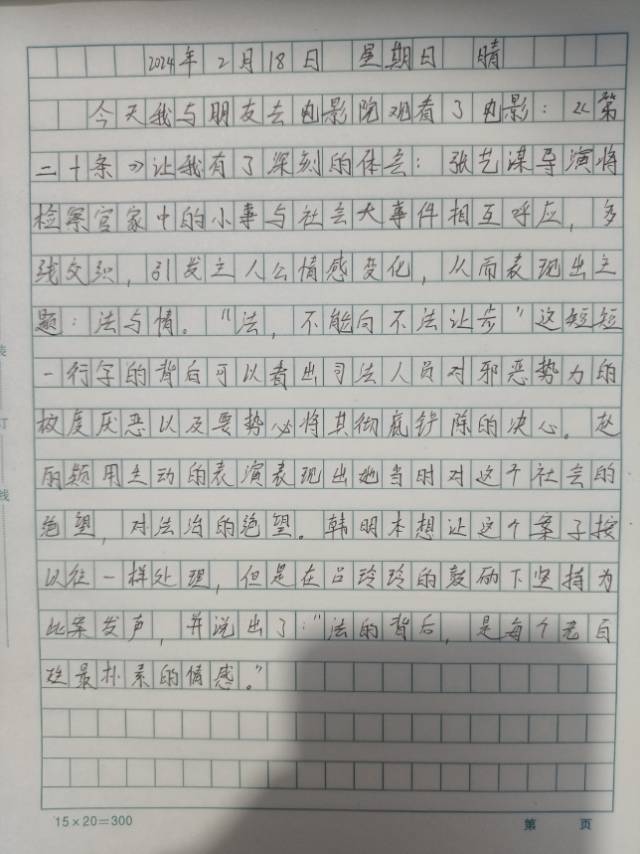 2024年2月18日 星期日 晴
今天我与朋友去电影院观看了电影:《第
二十条》让我有了深刻的体会:张艺谋导演将
检察官家中的小事与社会大事件相互呼应,多
线交织,引发主人公情感变化,从而表现出主
题:法与情。"法,不能向不法让步"这短短
一行字的背后可以看出司法人员对邪恶势力的
极度厌恶以及要势必将其彻底铲除的决心。赵
丽颖用生动的表演表现出她当时对这个社会的
绝望,对法治的绝望。韩明本想让这个案子按
以往一样处理,但是在吕玲玲的鼓励下坚持为
此案发声,并说出了:"法的背后,是每个老百
姓最朴素的情感。"
15×20=300
第 页
装
订
线